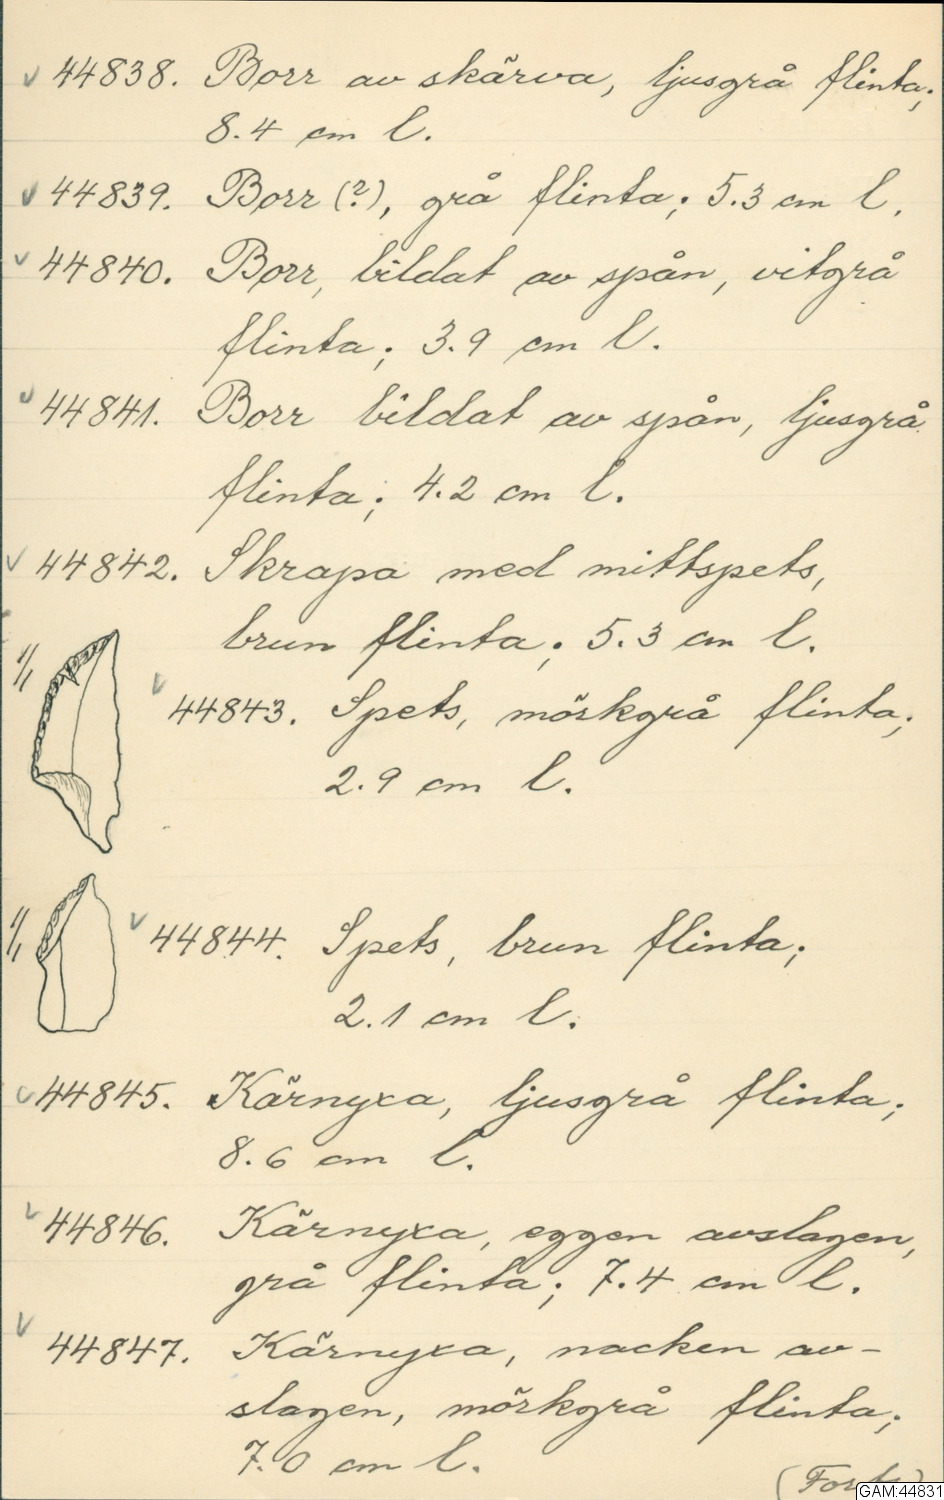 ✓ 44838. Borr av skärva, ljusgrå flinta;
8.4 cm l.
✓ 44839. Borr (?), grå flinta; 5.3 cm l.
✓ 44840. Borr, bildat av spån, vitgrå
flinta; 3.9 cm l.
✓ 44841. Borr bildat av spån, ljusgrå
flinta; 4.2 cm l.
✓ 44842. Skrapa med mittspets,
brun flinta; 5.3 cm l.
1/1
✓ 44843. Spets, mörkgrå flinta;
2.9 cm l.
1/1
✓ 44844. Spets, brun flinta;
2.1 cm l.
✓ 44845. Kärnyxa, ljusgrå flinta;
8.6 cm l.
✓ 44846. Kärnyxa, eggen avslagen,
grå flinta; 7.4 cm l.
✓ 44847. Kärnyxa, nacken av-
slagen, mörkgrå flinta;
7.0 cm l.
(Forts)
GAM:44831